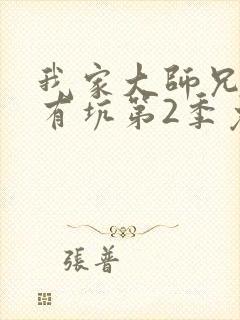 我家大師兄
有坑第2季
張普